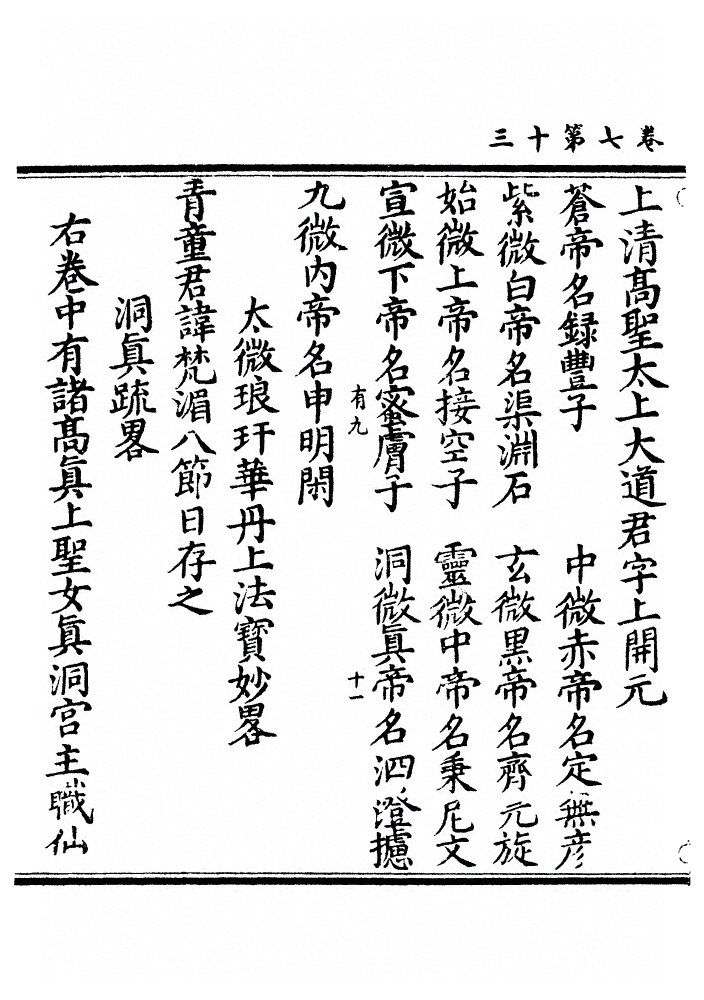 卷七第十三
上清髙聖太上大道君字上開元
蒼帝名録豐子　中微赤帝名定無彥
紫微白帝名渠淵石　玄微黒帝名齊元旋
始微上帝名接空子　靈微中帝名秉尼文
宣微下帝名蜜膚子　洞微眞帝名泗澄攄
有九　十一
九微内帝名申明閑
太微琅玕華丹上法寶妙畧
青童君諱梵湄八節日存之
洞眞䟽畧
右卷中有諸髙眞上聖女眞洞宫主職仙